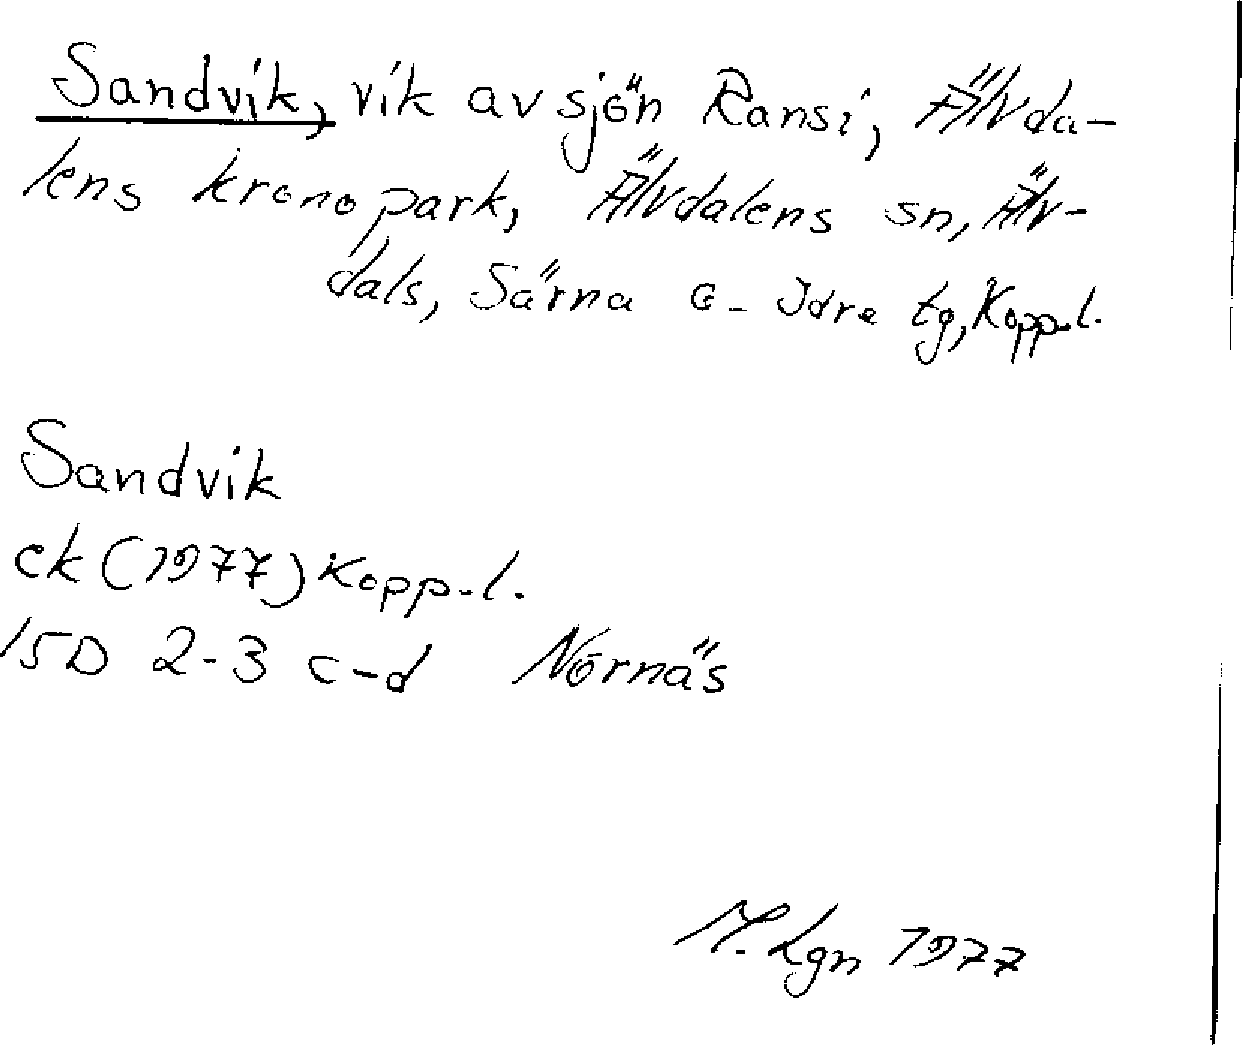 Sandvik, vik av sjön Ransi, Älvda-
lens kronopark, Älvdalens sn, Älv-
dals, Särna o- Idre tg, Kopp.l.
Sandvik
ek (1977) Kopp.l.
15D 2-3 c-d Nornäs
M. Lgn 1977